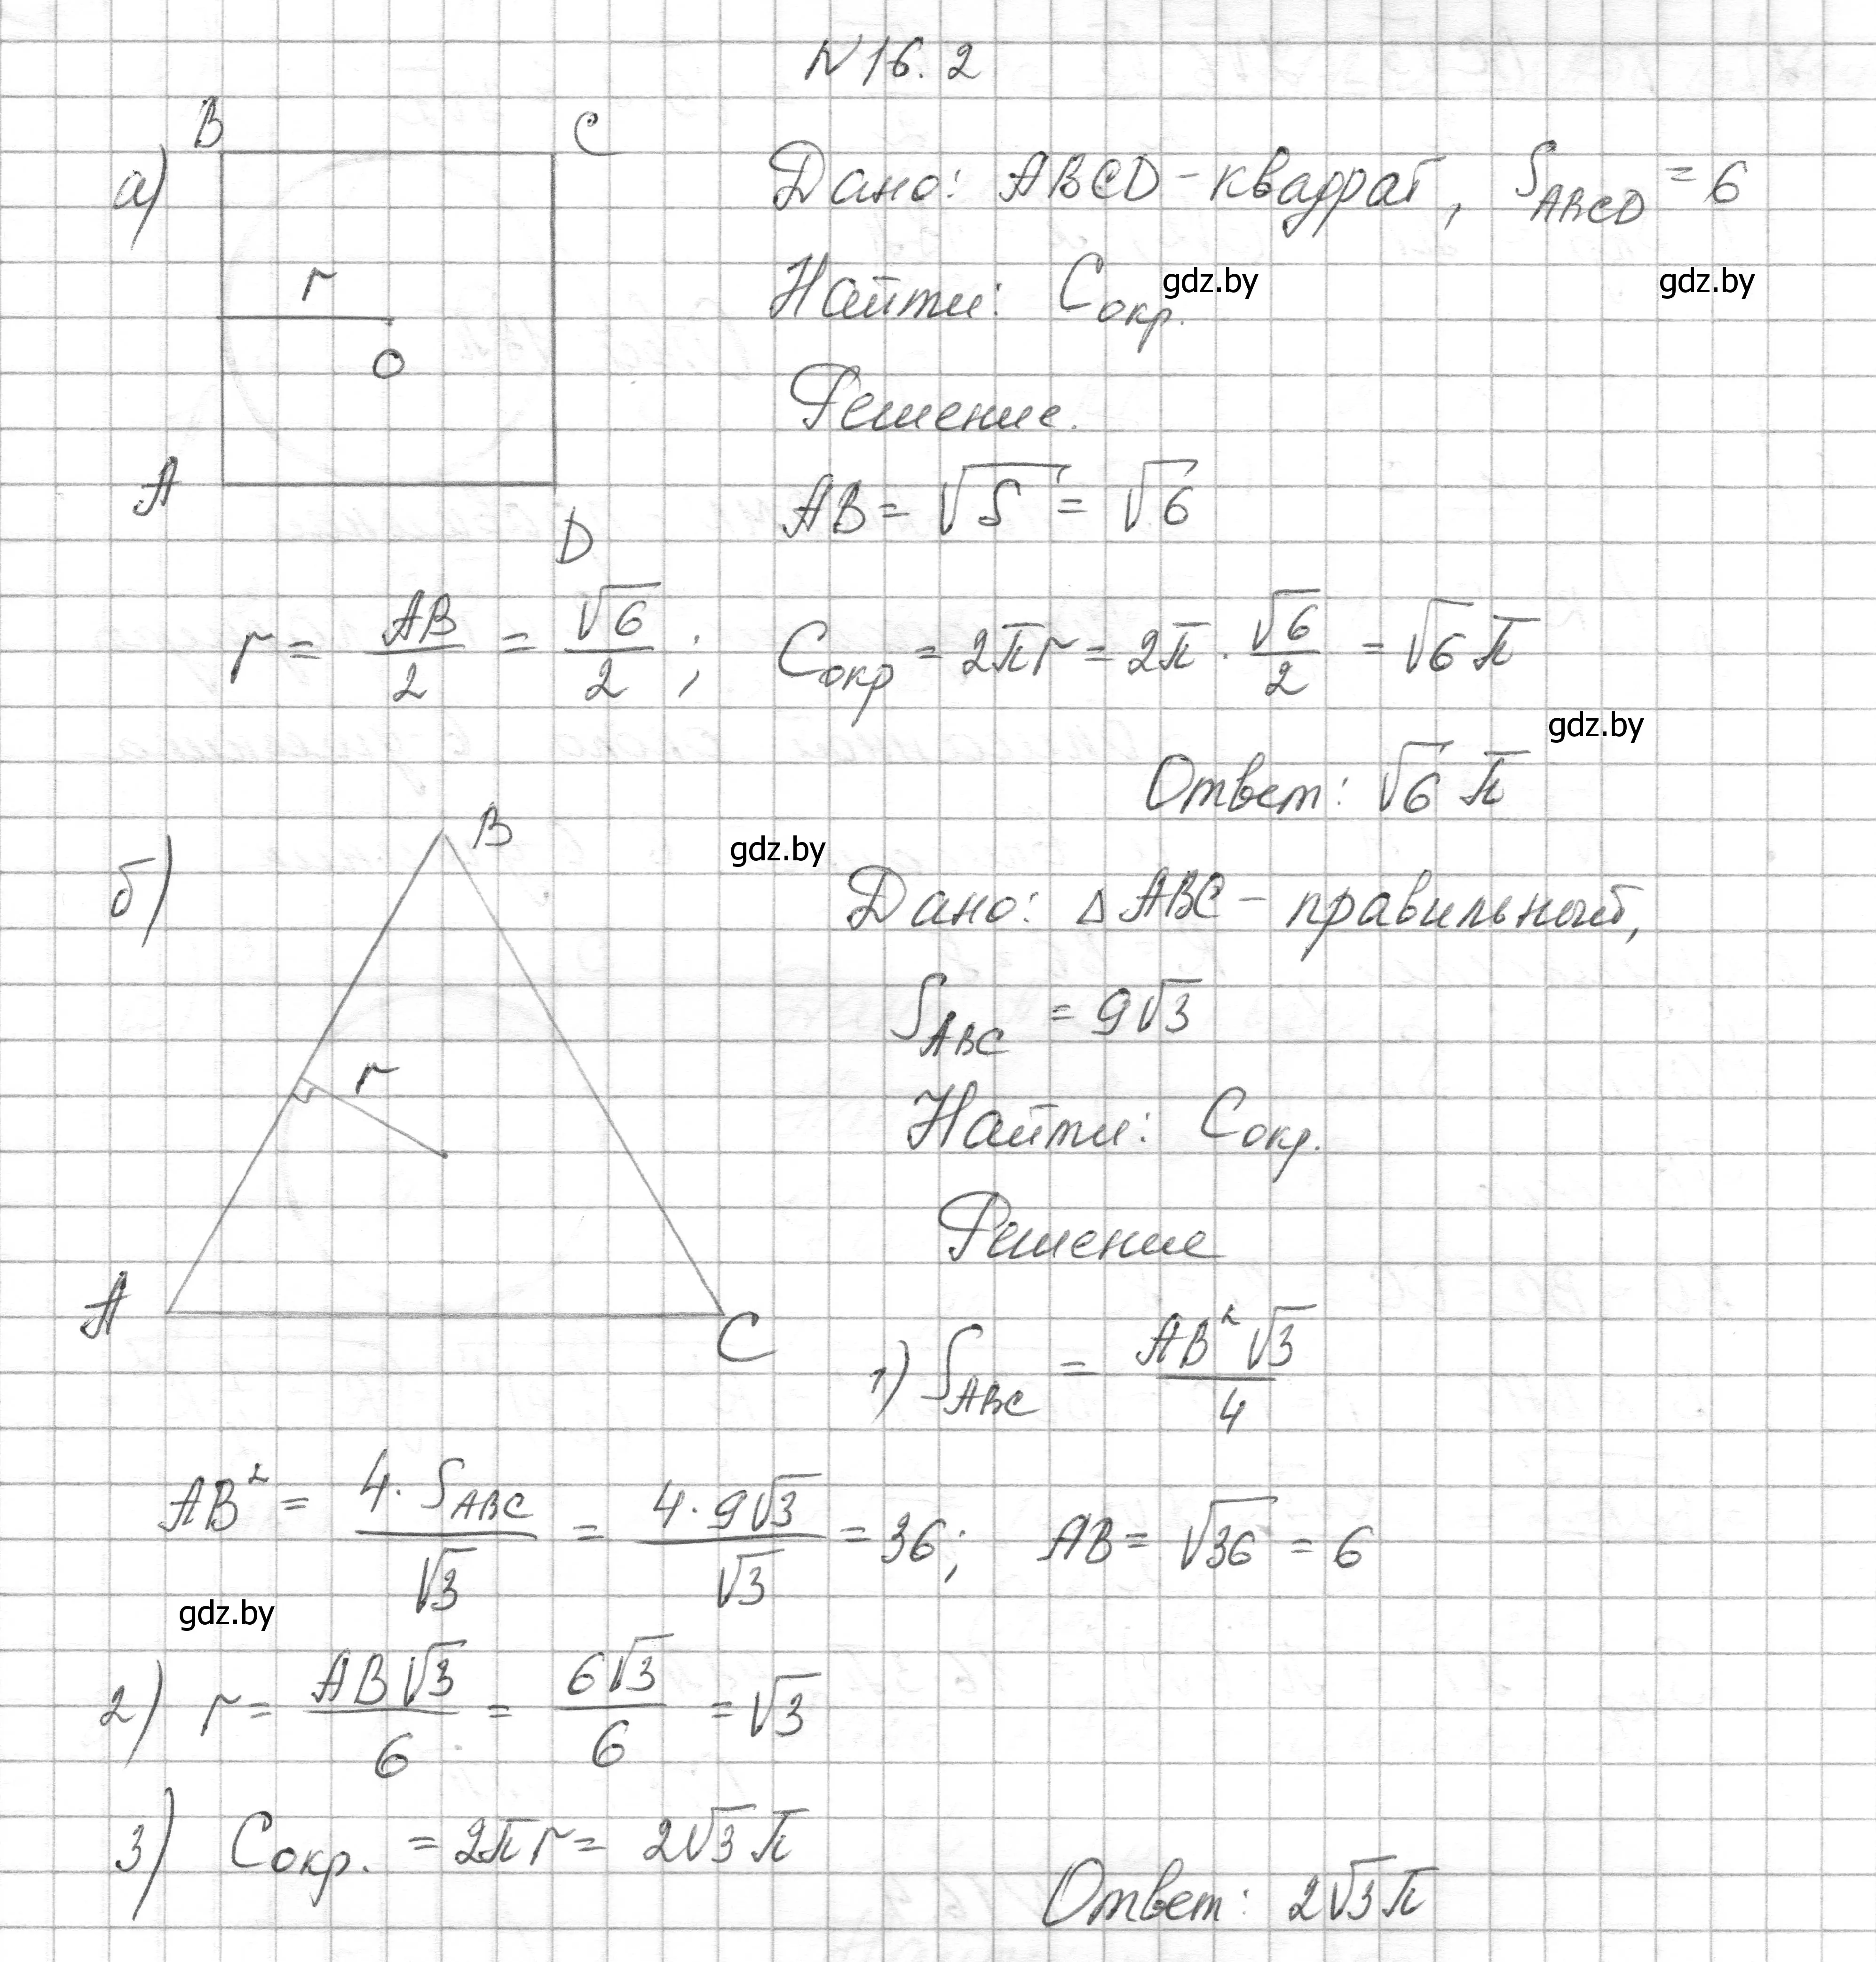 N 16. 2
а)
B C
r
O
A D
Дано: ABCD - квадрат, S_ABCD = 6
gdz.by gdz.by
Найти: C окр.
Решение.
AB = √S = √6
r = AB/2 = √6/2 ; C окр = 2πr = 2π · √6/2 = √6 π
gdz.by
Ответ: √6 π
б)
B
r
A C
gdz.by
Дано: △ ABC - правильный,
S_ABC = 9√3
Найти: C окр.
Решение
1) S_ABC = AB²√3/4
AB² = 4 · S_ABC/√3 = 4 · 9√3/√3 = 36; AB = √36 = 6
gdz.by
2) r = AB√3/6 = 6√3/6 = √3
3) C окр. = 2πr = 2√3 π
Ответ: 2√3 π